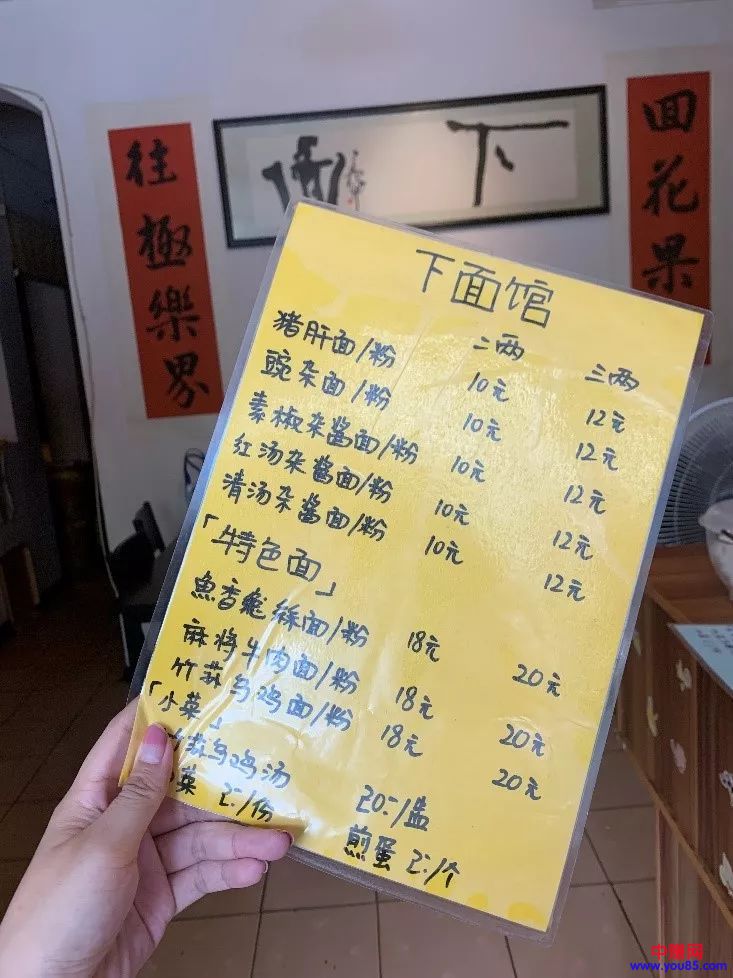 下面
往極樂界
回花果
下面馆
二两 三两
猪肝面/粉 10元 12元
豌杂面/粉 10元 12元
素椒杂酱面/粉 10元 12元
红汤杂酱面/粉 10元 12元
清汤杂酱面/粉 10元 12元
「特色面」
魚香 面/粉 18元 20元
麻将牛肉面/粉 18元 20元
竹荪乌鸡面/粉 18元 20元
「小菜」
荪乌鸡汤 20:/盅
菜 2:/份 煎蛋 2:/个
www.you85.com